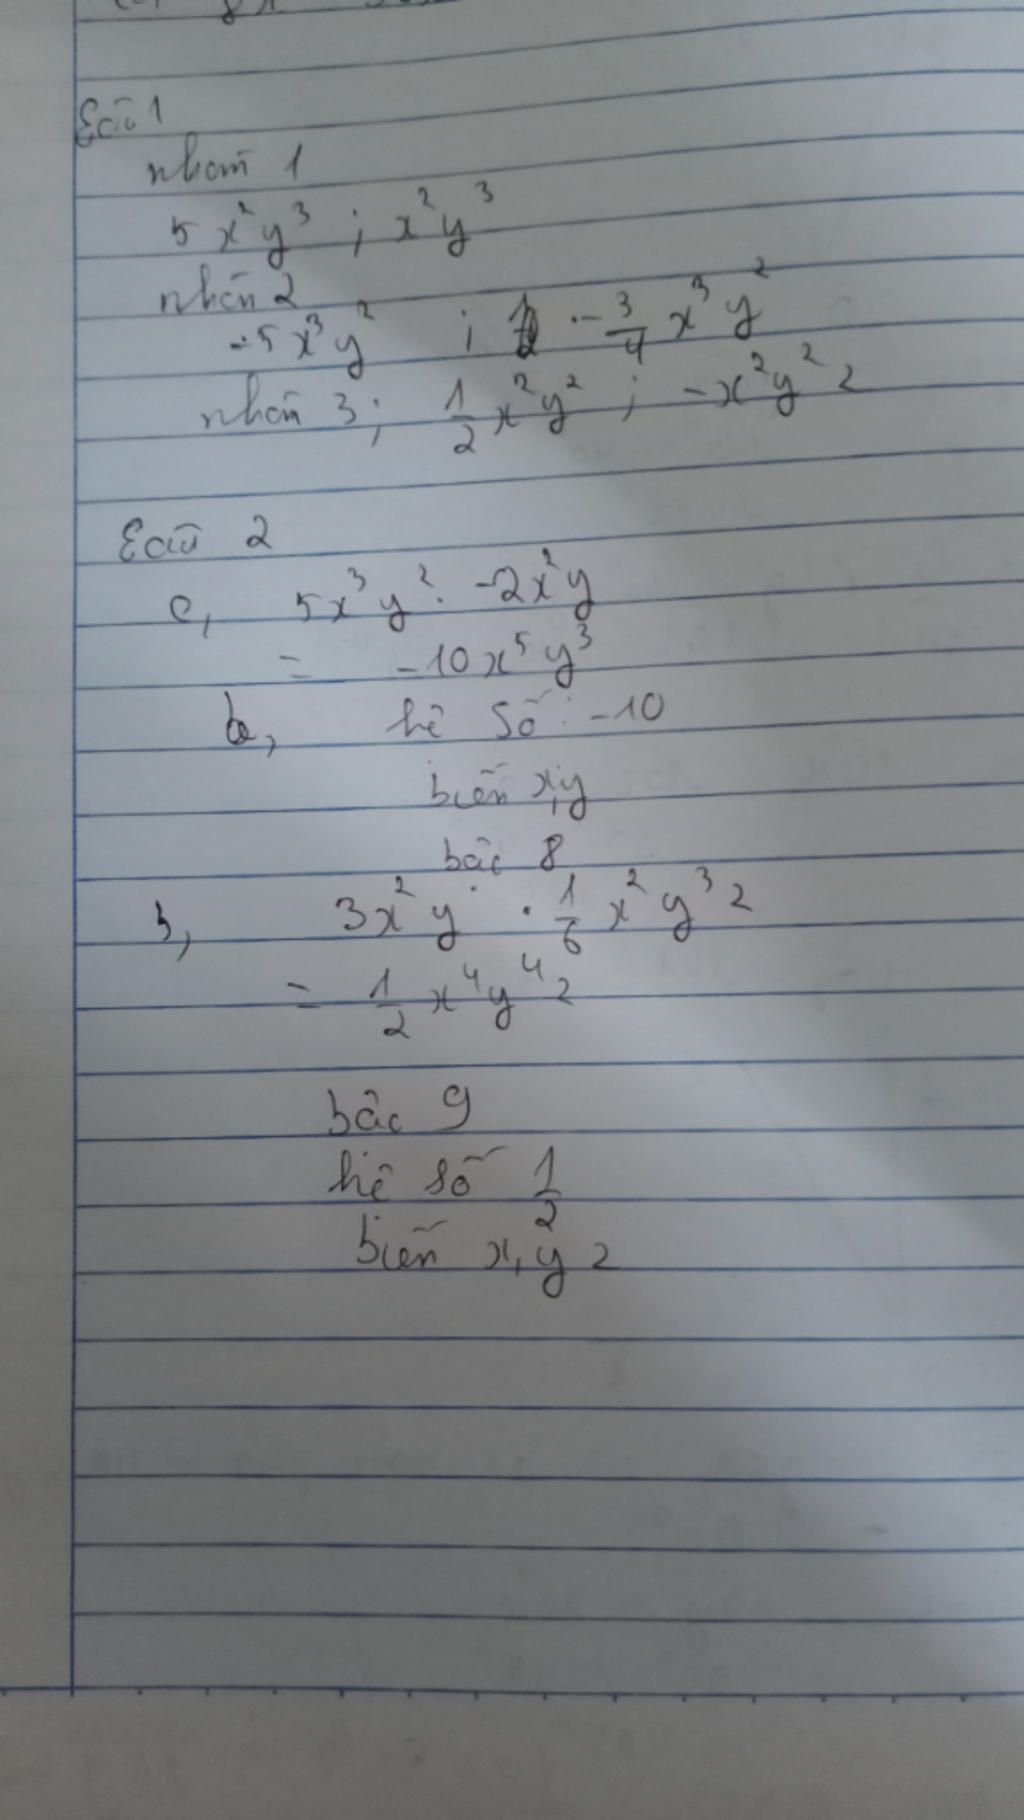 Câu 1
nhóm 1
5x²y³ ; x²y³
nhóm 2
-5x³y² ; -3/4 x³y²
nhóm 3; 1/2 x²y² ; -x²y²z
Câu 2
a, 5x³y² . -2x²y
= -10x⁵y³
hệ số: -10
biến x,y
bậc 8
b, 3x²y . 1/6 x²y³z
= 1/2 x⁴y⁴z
bậc 9
hệ số 1/2
biến x, y z